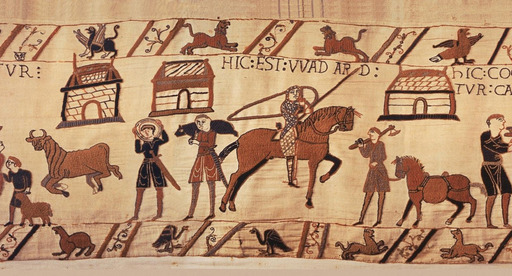 TVR:
HIC:EST:VVADARD:
hIC:CO
TVR:CA